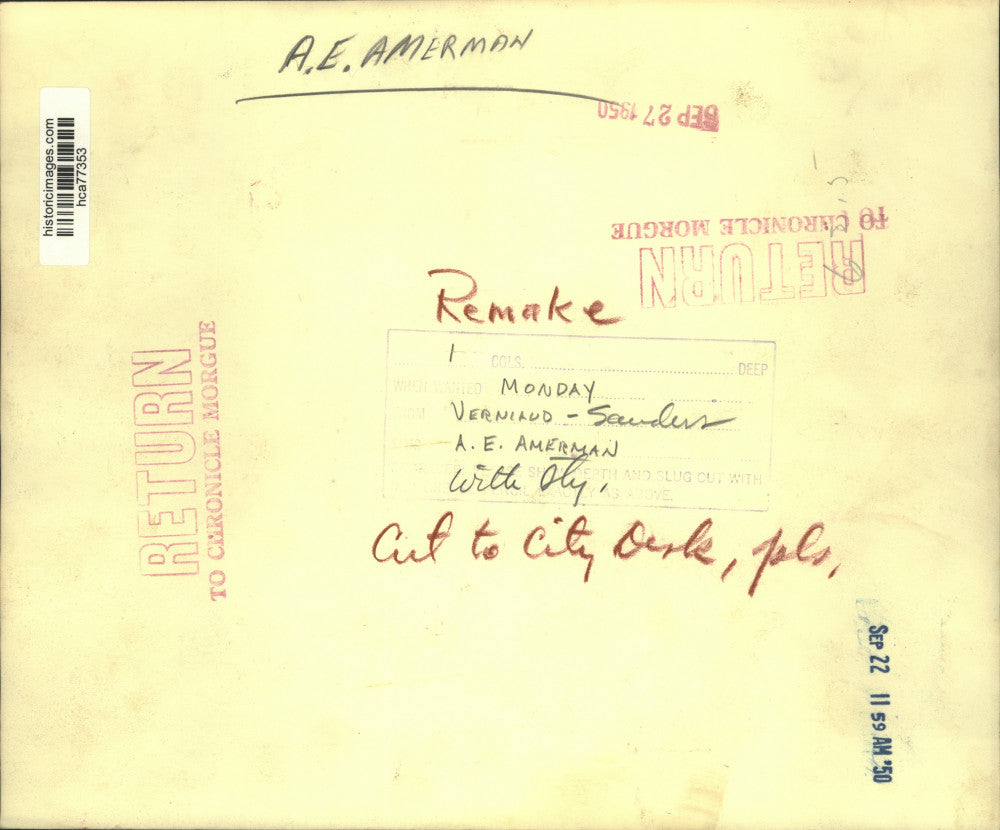 A.E. AMERMAN
SEP 27 1950
historicimages.com
hca77353
TO CHRONICLE MORGUE
RETURN
Remake
1 COLS. DEEP
WHEN WANTED MONDAY
VERNIAUD - Sanders
A. E. AMERMAN
DEPTH AND SLUG CUT WITH
With Sty.
AS ABOVE.
RETURN
TO CHRONICLE MORGUE
Cut to City Desk, pls,
SEP 22 11 59 AM '50